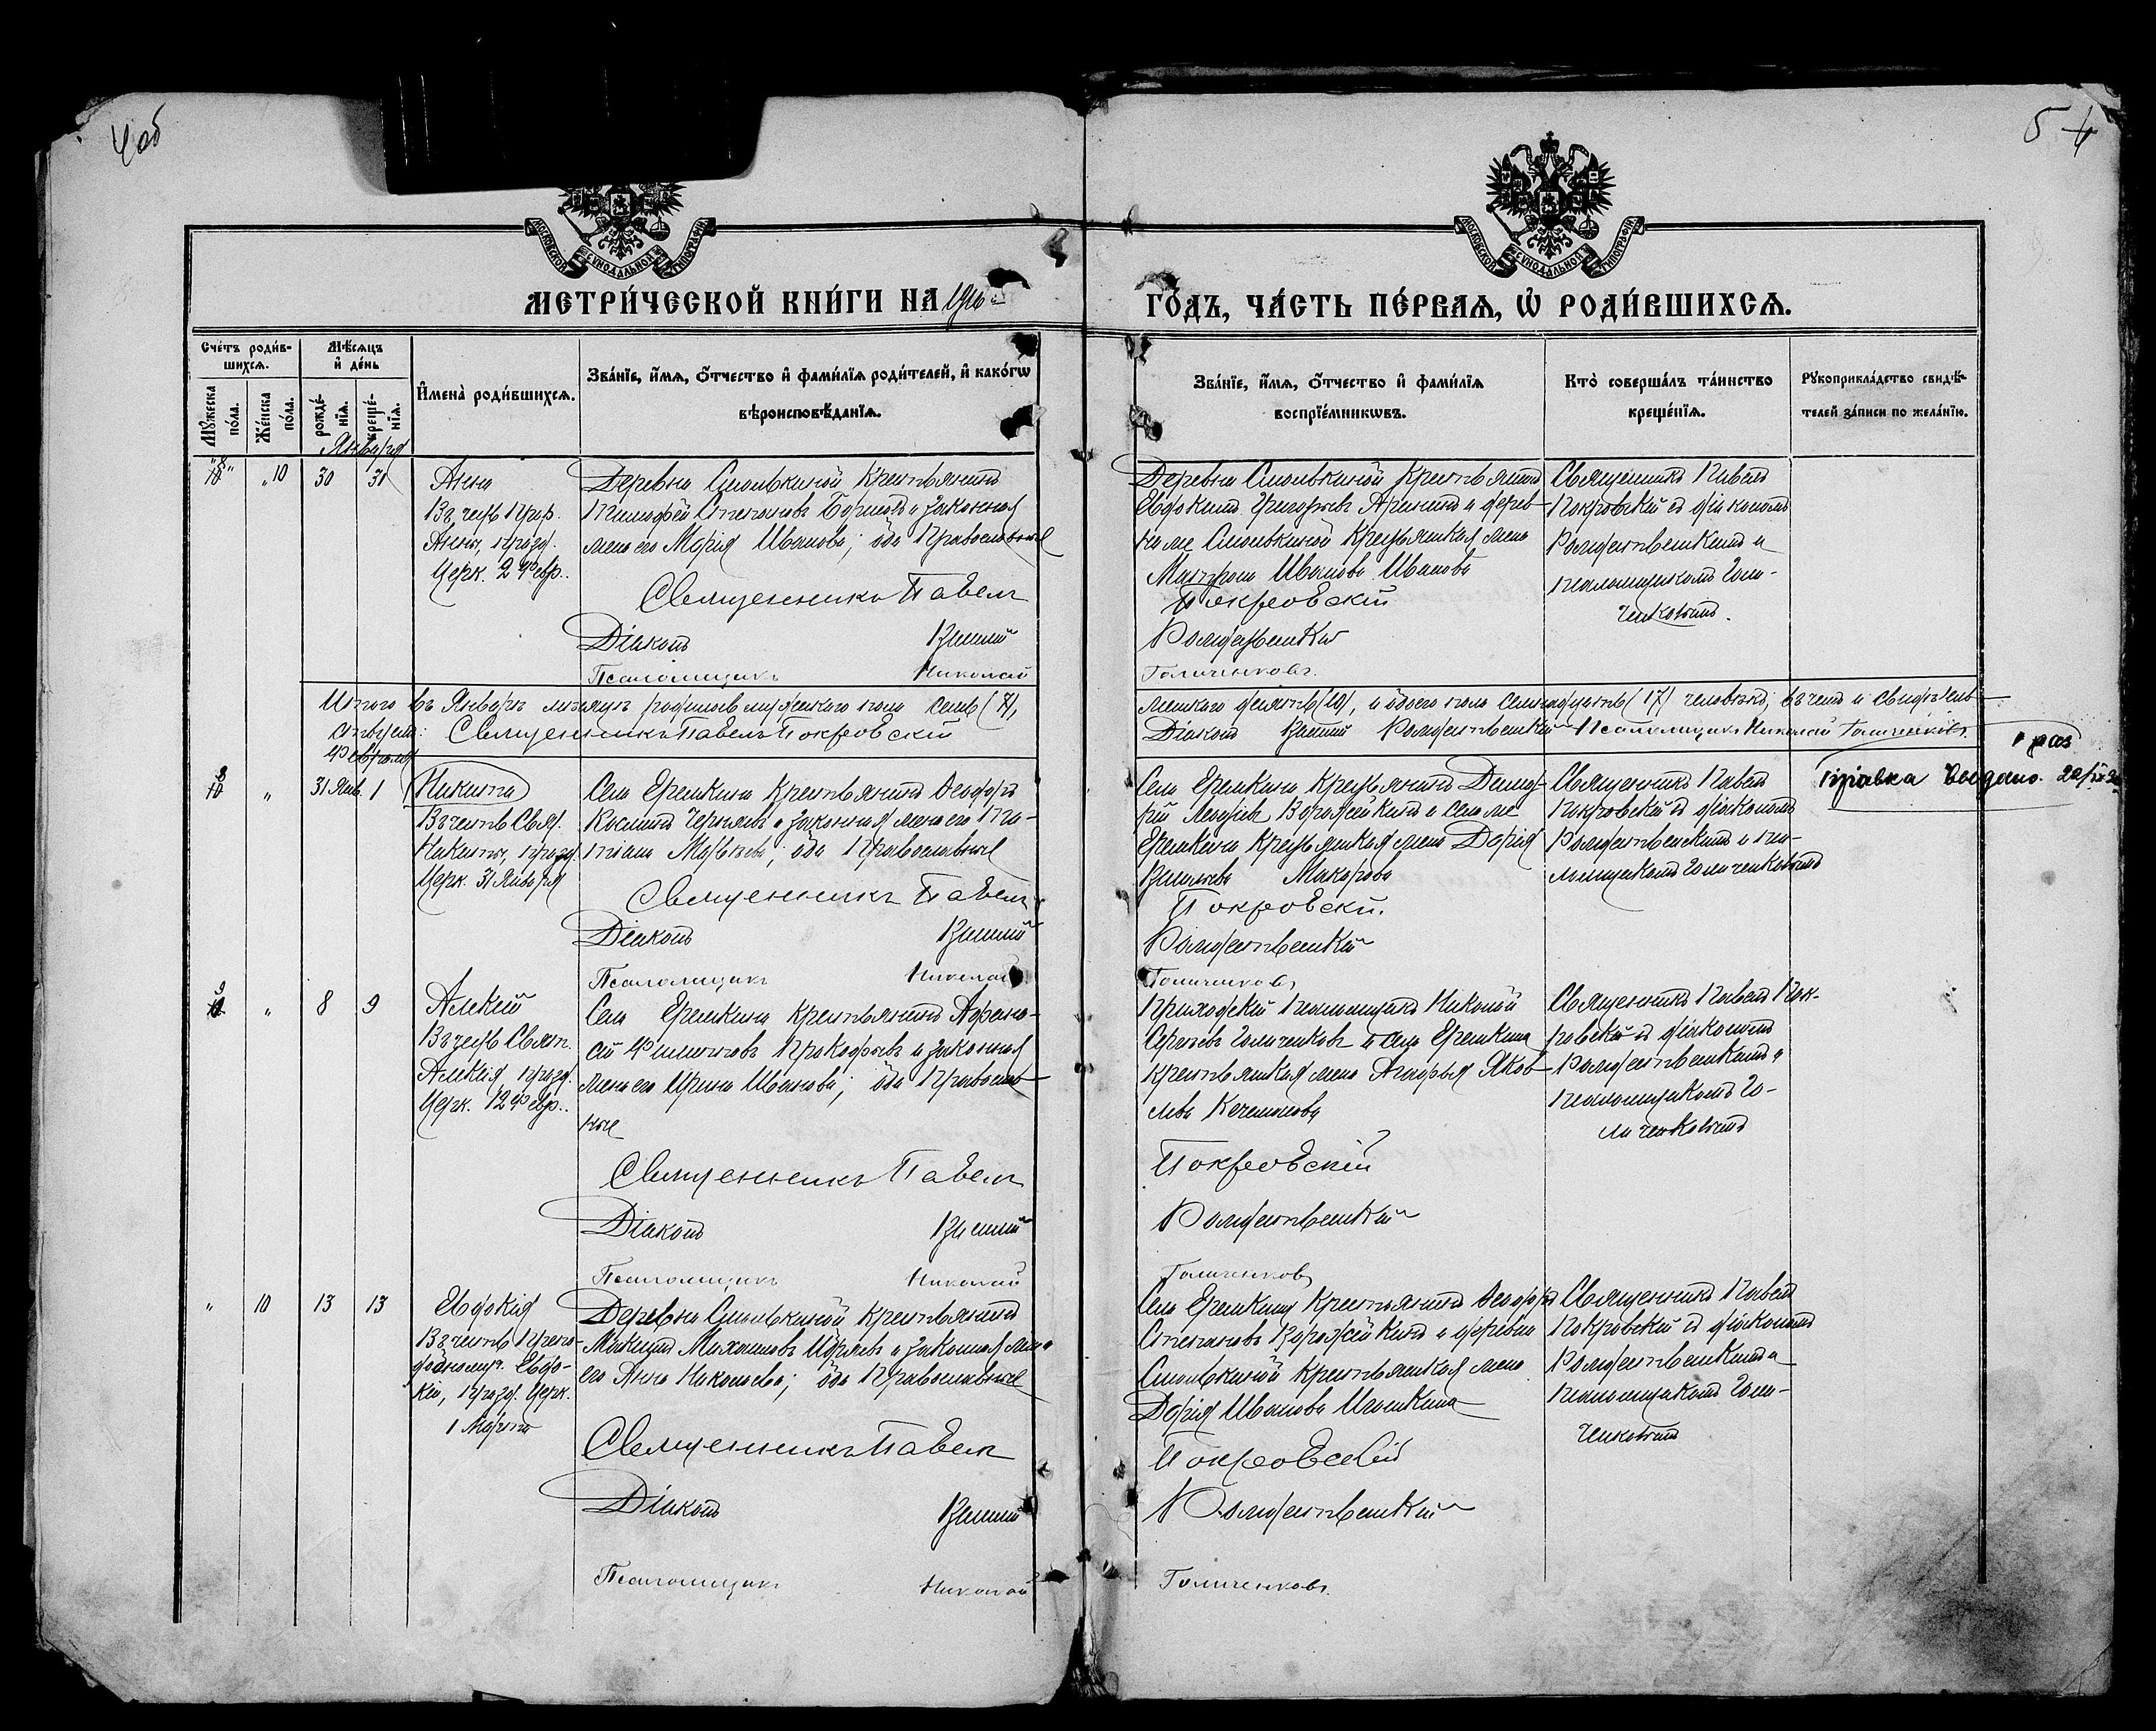 4 об
5
МОСКОВСКОЙ СѴНОДАЛЬНОЙ ТИПОГРАФІИ
МОСКОВСКОЙ СѴНОДАЛЬНОЙ ТИПОГРАФІИ
МЕТРИ́ЧЕСКОЙ КНИ́ГИ НА 1916
ГО́ДЪ, ЧА́СТЬ ПЕ́РВАЯ, Ѡ҆ РОДИ́ВШИХСЯ.
Сче́тъ роди́в-
шихсѧ.
Мѣ́сѧцъ
и҆ де́нь
Мꙋ́жеска
по́ла.
Же́нска
по́ла.
рожде́-
нїѧ.
креще́-
нїѧ.
И҆мена̀ роди́вшихсѧ.
Зва́нїе, и҆́мѧ, ѻ҆́тчество и҆ фами́лїѧ роди́телей, и҆ како́гѡ
вѣроисповѣ́данїѧ.
Зва́нїе, и҆́мѧ, ѻ҆́тчество и҆ фами́лїѧ
воспрїе́мникѡвъ.
Кто̀ соверша́лъ та́инство
креще́нїѧ.
Рꙋкоприкла́дство свидѣ́-
телей за́писи по жела́нїю.
Января
10 30 31
Анна
Въ честь Прор.
Анны, празд.
Церк. 2 Февр.
Деревни Смолькиной Крестьянинъ
Тимофей Степановъ и законная
жена его Марія Иванова; оба Православные
Священникъ Павелъ
Діаконъ Василій
Псаломщикъ Николай
Деревни Смолькиной Крестьянинъ
Евдокимъ Григорьевъ и дерев-
ни Смолькиной Крестьянская жена
Матрона Иванова Иванова
Покровскій
Рождественскій
Голиченковъ.
Священникъ Павелъ
Покровскій съ діакономъ
Рождественскимъ и
псаломщикомъ Голи-
ченковымъ.
Итого въ Январѣ мѣсяцѣ родилось мужескаго пола семь (7),
женскаго десять (10), а обоего пола семнадцать (17) человѣкъ; въ чемъ и свидѣтель-
ствуемъ: Священникъ Павелъ Покровскій
Діаконъ Василій Рождественскій Псаломщикъ Николай Голиченковъ.
Февраля
8 " 31 Янв. 1
Никита
Въ честь Свят.
Никиты, празд.
Церк. 31 Января
Села Еремкина Крестьянинъ Ѳеодоръ
Косминъ и законная жена его Та-
тіана Матвѣева; оба Православные
Священникъ Павелъ
Діаконъ Василій
Псаломщикъ Николай
Села Еремкина Крестьянинъ Дмит-
рій Ворожейкинъ и села
Еремкина Крестьянская жена Дарія
Васильева Макарова
Покровскій.
Рождественскій
Голиченковъ
Священникъ Павелъ
Покровскій съ діакономъ
Рождественскимъ и пса-
ломщикомъ Голиченковымъ
справка выдана.
9 " 8 9
Алексій
Въ честь Свят.
Алексія празд.
Церк. 12 Февр.
Села Еремкина Крестьянинъ Афана-
сій Филипповъ Прокофьевъ и законная
жена его Ирина Иванова; оба Православ-
ные
Священникъ Павелъ
Діаконъ Василій
Псаломщикъ Николай
Приходскій псаломщикъ Николай
Сергѣевъ Голиченковъ и села Еремкина
крестьянская жена Агафья Яков-
лева
Покровскій
Рождественскій
Голиченковъ
Священникъ Павелъ Пок-
ровскій съ діакономъ
Рождественскимъ и
псаломщикомъ Го-
личенковымъ
" 10 13 13
Евдокія
Въ честь Препо-
добномуч. Евдо-
кіи, празд. Церк.
1 Марта
Деревни Смолькиной Крестьянинъ
Михаиловъ и законная жена
его Анна Николаева; оба Православные
Священникъ Павелъ
Діаконъ Василій
Псаломщикъ Николай
Села Еремкина Крестьянинъ Ѳеодоръ
Степановъ Ворожейкинъ и деревни
Смолькиной Крестьянская жена
Дарія Иванова Игошкина
Покровскій
Рождественскій
Голиченковъ.
Священникъ Павелъ
Покровскій съ діакономъ
Рождественскимъ и
псаломщикомъ Голи-
ченковымъ